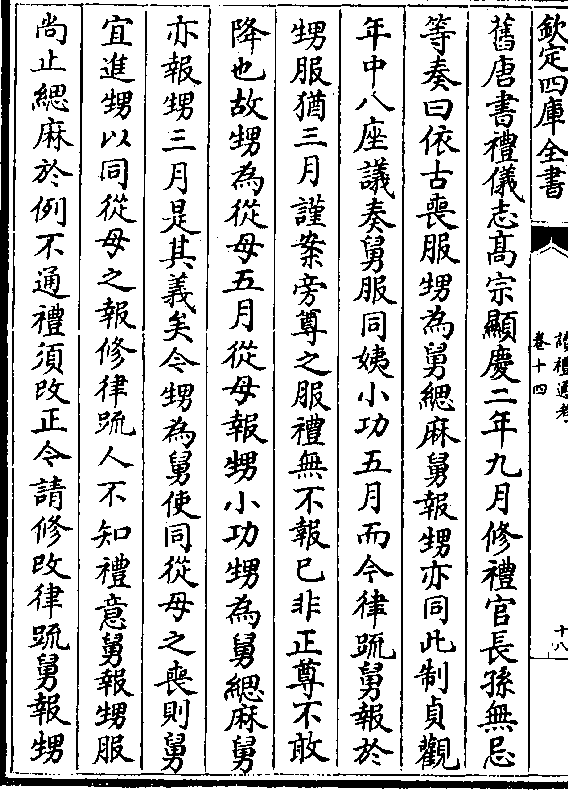 欽定四庫全書
讀禮通考
卷十四
十八
舊唐書禮儀志髙宗顯慶二年九月修禮官長孫無忌
等奏曰依古喪服甥為舅緦麻舅報甥亦同此制貞觀
年中八座議奏舅服同姨小功五月而今律疏舅報於
甥服猶三月謹案旁尊之服禮無不報已非正尊不敢
降也故甥為從母五月從母報甥小功甥為舅緦麻舅
亦報甥三月是其義矣今甥為舅使同從母之喪則舅
宜進甥以同從母之報修律疏人不知禮意舅報甥服
尚止緦麻於例不通禮須改正今請修改律疏舅報甥